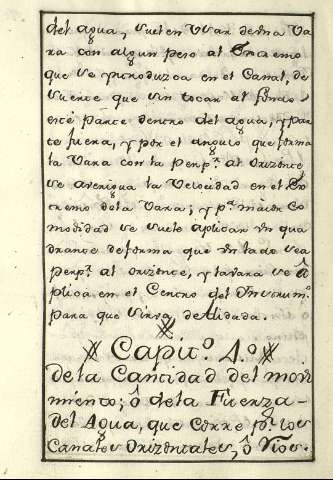 del agua, suelen usar de una Va
ra con algun peso al Extremo
que se yntroduzca en el Canal, de
suerte que sin tocar al fondo
esté parte dentro del agua, y par
te fuera, y por el angulo que forma
la Vara con la Perp.ª al Orizonte
se averigua la Velocidad en el Ex
tremo dela Vara; y p.ª maior Co
modidad se suele aplicar un qua
drante de forma que un lado sea
perp.ª al orizonte, y la vara se â
plica en el Centro del Ynstrum.º
para que sirva de Alidada.
Capit.º 4.º
de la Cantidad del movi
miento; ô dela Fuerza
del Agua, que Corre p.r los
Canales Orizontales, ô Rios.